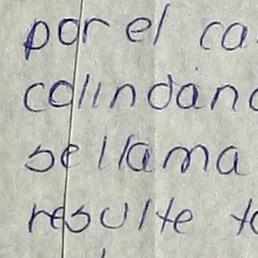 por el ca
colindan
se llama
resulte